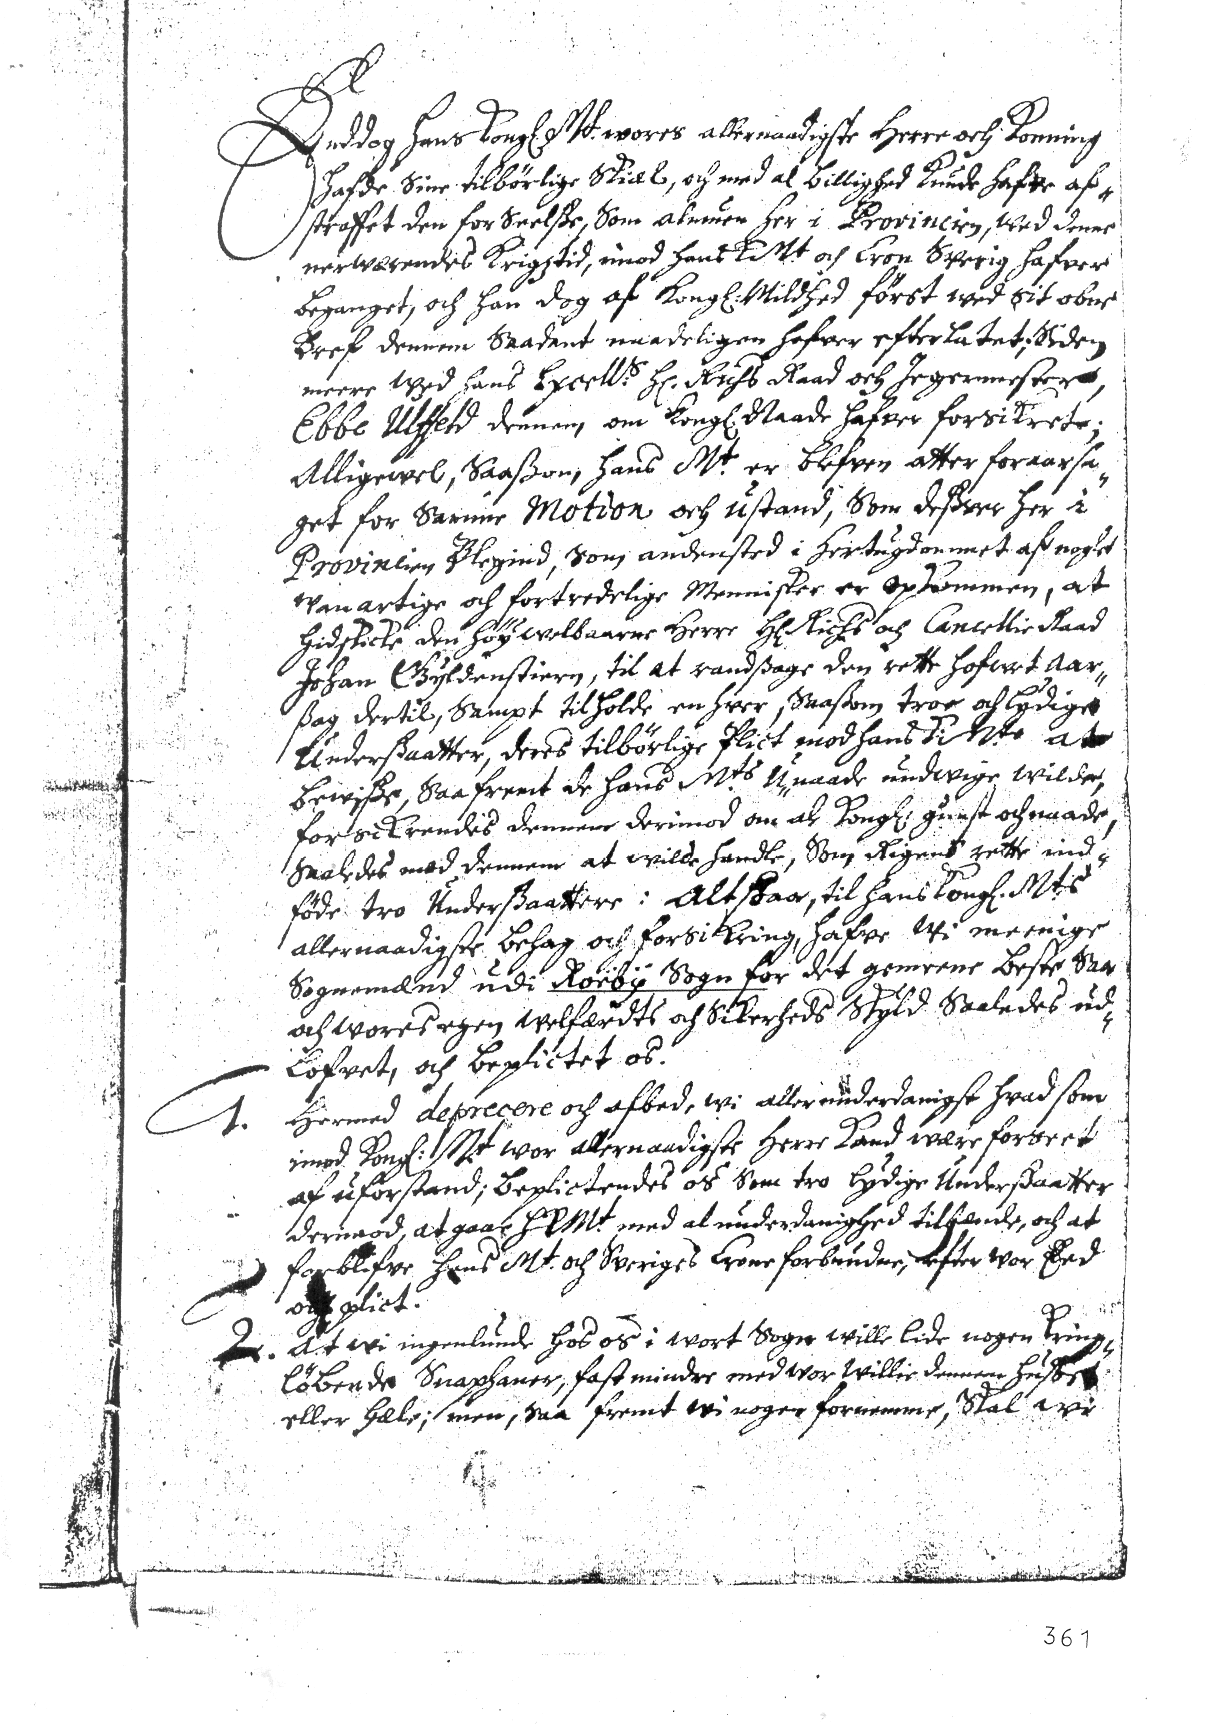 Enddog hans Kongl. Mt. wores allernaadigste Herre och Konning
hafde Sine tilbørlige Skiæl, och med al billighed kunde hafve af„
straffet den forseelse, Som almuen her i Provincien, ved denne
nerwærendes Krigstid, imod hans K Mt och Cron Sverig hafver
beganget, och han dog af Kongl: Mildhed først wed Sit obne
Bref dennem Saadant naadeligen hafver efterladet; Siden
meere Wed hans Excell:s Hr. Richs Raad och Jegermester,
Ebbe Ulffeld dennem om Kongl. Naade hafver forsikrete;
Alligewel, Saasom hans Mt. er blefven atter foraarsa„
get for Samme Motion och ustand, Som desver her i
Provincien Blegind, Som andensted i Hertugdommet af noglet
wanartige och fortredelige Mennisker er opkommen, at
hidskicke den Høy welbaarne Herre Hr. Richs och Cancellie Raad
Johan Gyldenstiern, til at randsage den rette hofvet Aar„
sag dertil, Sampt tilholde en hver, Saasom troe och lydige
Undersaatter, deres tilbørlige Plict mod hans K Mt. at
bewise, Saafremt de hans Mts Unaade undwige wilde,
forsikrendes dennem derimod om al Kongl. gunst och naade,
Saaledes med dennem at wille handle, Som Rigens rette ind„
føde tro Undersaattere: Altsaa, til hans Kongl. Mts
allernaadigste behag och forsikring, hafve Wi meenige
Sognemænd udi Roeby Sogn for det gemeene beste Saa
och wores egen welfærdts och Sikerheds Skyld Saaledes ud„
Lofvet, och beplictet os.
1. Hermed deprecere och afbede, wi allerunderdanigst hvad som
imod Kongl: Mt wor allernaadigste Herre kand være forseet
af uforstand; beplictendes os Som tro lydige Undersaatter
derimod, at gaae H K Mt. med al underdanighed tilhænde, och at
forblifve hans Mt. och Sveriges Crone forbundne, efter wor Eed
och plict.
2. At wi ingenlunde hos os i wort Sogn wille lide nogen kring„
løbende Snaphaner, fast mindre med wor Willie dennem huse
eller Hæle; men, saa fremt wi nogen fornemme, Skal wi
4
361